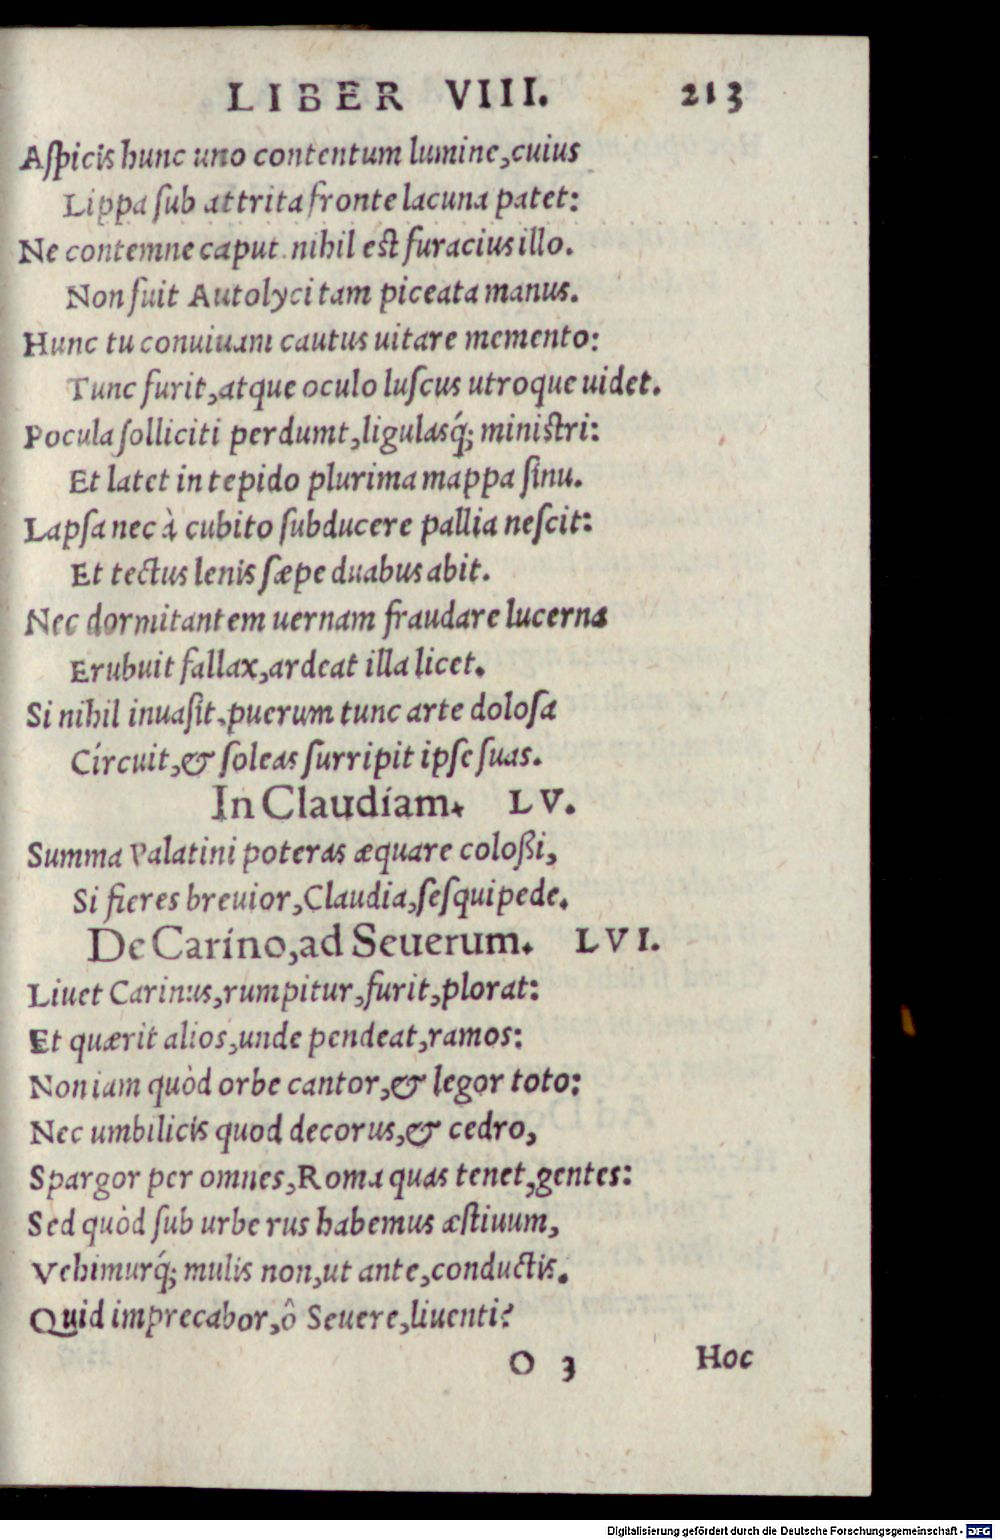 LIBER VIII. 213
Aſpicis hunc uno contentum lumine, cuius
Lippa ſub attrita fronte lacuna patet:
Ne contemne caput. nihil eſt furacius illo.
Non fuit Autolyci tam piceata manus.
Hunc tu conuiuam cautus uitare memento:
Tunc furit, atque oculo luſcus utroque uidet.
Pocula ſolliciti perdunt, ligulasq́; miniſtri:
Et latet in tepido plurima mappa ſinu.
Lapſa nec à cubito ſubducere pallia neſcit:
Et tectus lenis ſæpe duabus abit.
Nec dormitantem uernam fraudare lucerna
Erubuit fallax, ardeat illa licet.
Si nihil inuaſit, puerum tunc arte doloſa
Circuit, & ſoleas ſurripit ipſe ſuas.
In Claudiam. LV.
Summa Palatini poteras æquare coloßi,
Si fieres breuior, Claudia, ſeſquipede.
De Carino, ad Seuerum. LVI.
Liuet Carinus, rumpitur, furit, plorat:
Et quærit alios, unde pendeat, ramos:
Non iam quòd orbe cantor, & legor toto:
Nec umbilicis quod decorus, & cedro,
Spargor per omnes, Roma quas tenet, gentes:
Sed quòd ſub urbe rus habemus æſtiuum,
Vehimurq́; mulis non, ut ante, conductis.
Quid imprecabor, ô Seuere, liuenti?
O 3 Hoc
Digitalisierung gefördert durch die Deutsche Forschungsgemeinschaft - DFG